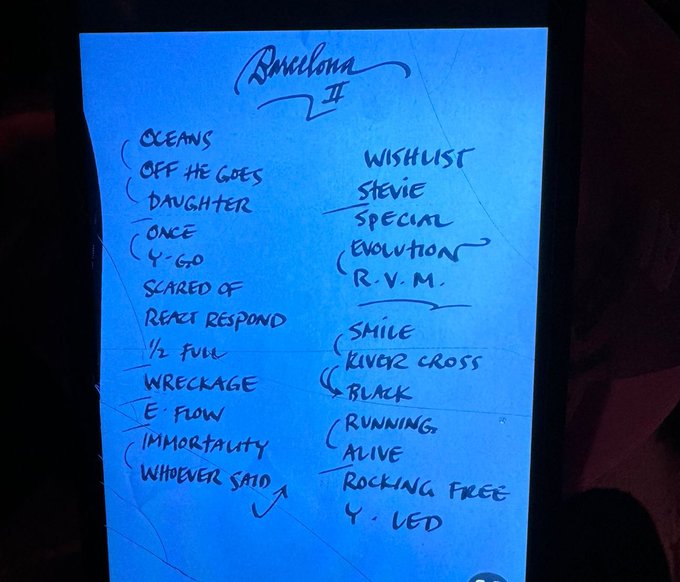 Barcelona
II
OCEANS
OFF HE GOES
DAUGHTER
ONCE
Y-GO
SCARED OF
REACT RESPOND
1/2 FULL
WRECKAGE
E. FLOW
IMMORTALITY
WHOEVER SAID
WISHLIST
STEVIE
SPECIAL
EVOLUTION
R.V.M.
SMILE
RIVER CROSS
BLACK
RUNNING
ALIVE
ROCKING FREE
Y. LED